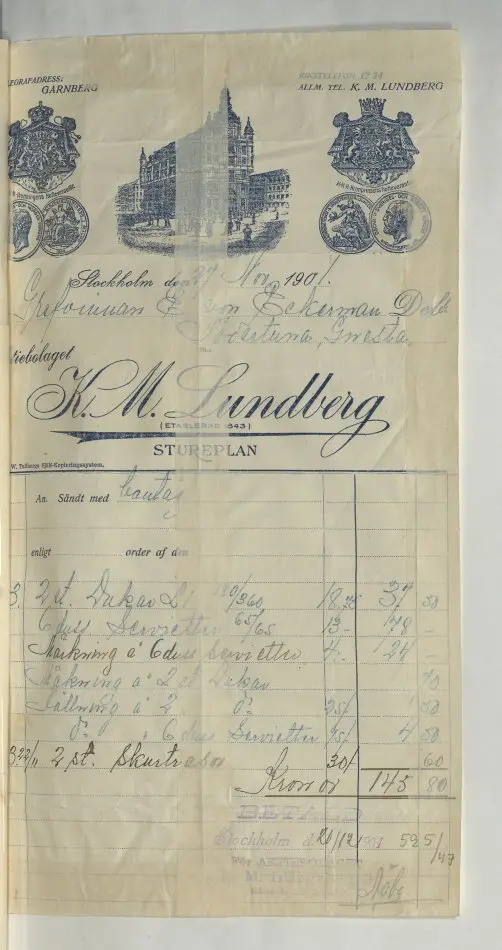 EGRAFADRESS:
GARNBERG
RIKSTELEFON 12 24
ALLM. TEL. K. M. LUNDBERG
Stockholm den 27 Nov. 1901.
Grefvinnan E von Eckerman
Södertuna, Gnesta
tiebolaget
K. M. Lundberg
(ETABLERAD 1843)
STUREPLAN
W. Tullbergs EJBN-Kopieringssystem.
An. Sändt med
enligt order af den
3. 2 st. Dukar 180/360 18.75 37 50
6 duss Servietter 65/65 13- 78 -
Märkning å 6 duss servietter 4- 24 -
Märkning å 2 st Dukar 70
Fållning å 2 do 25/ 50
do " 6 duss Servietter 75/ 4 50
322/11 2 st. Skurtrasor 30/ 60
Kronor 145 80
BETALT
Stockholm d. 20/12 1901 525/47
För AKTIEBOLAGET